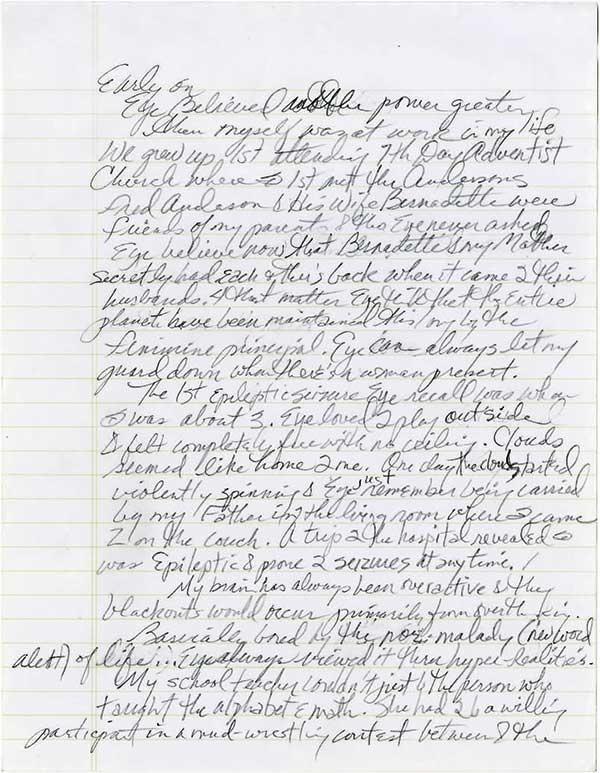 Early on
Eye Believed a power greater
then myself was at work in my life
We grew up 1st attending 7th Day Adventist
Church where 1st met the Andersons
Fred Anderson & His Wife Bernadette were
friends of my parents & tho Eye never asked
Eye believe now that Bernadette & my Mother
secretly had each other's back when it came 2 their
husbands. 4 that matter Eye that the Entire
planet have been maintained this way by the
feminine principal. Eye can always let my
guard down when there's a woman present.
The 1st epileptic seizure Eye recall was when
was about 3. Eye loved 2 play outside
& felt completely free with no ceiling. Clouds
seemed like home 2 me. One day the clouds started
violently spinning & Eye just remember being carried
by my Father in2 the living room where came
2 on the couch. A trip 2 the hospital revealed
was Epileptic & prone 2 seizures at any time.
My brain has always been overactive & the
blackouts would occur primarily from
Basically bored by the nor-malady (new word
alert) of life... Eye always viewed it thru hyper-realities.
My school teacher couldn't just b the person who
taught the alphabet & math. She had 2 b a willing
participant in a mud-wrestling contest between & the